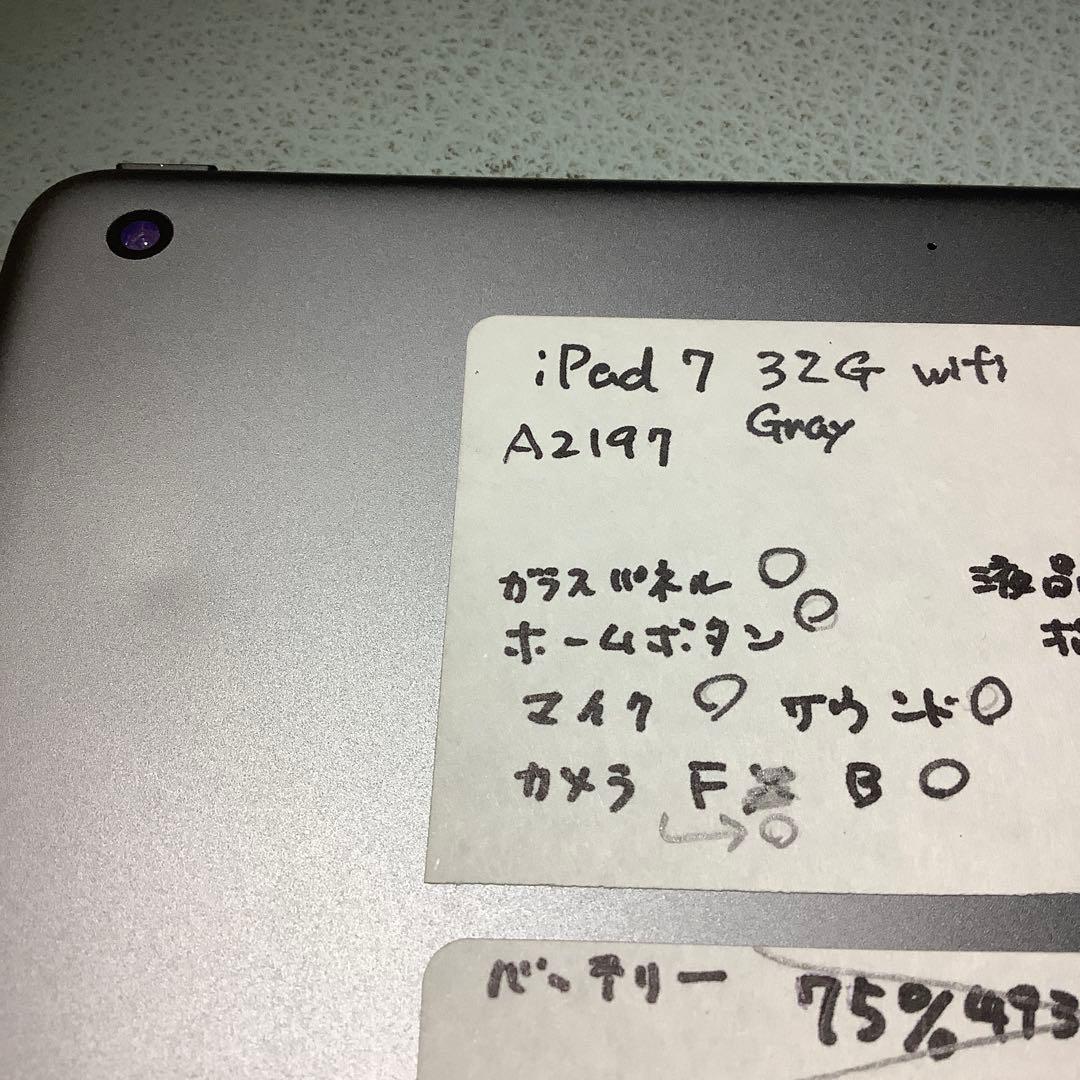 iPad 7 32G wifi
A2197 Gray
ガラスパネル ○ 液晶
ホームボタン ○
マイク ○ サウンド ○
カメラ F X B ○
→ ○
バッテリー 75% 493